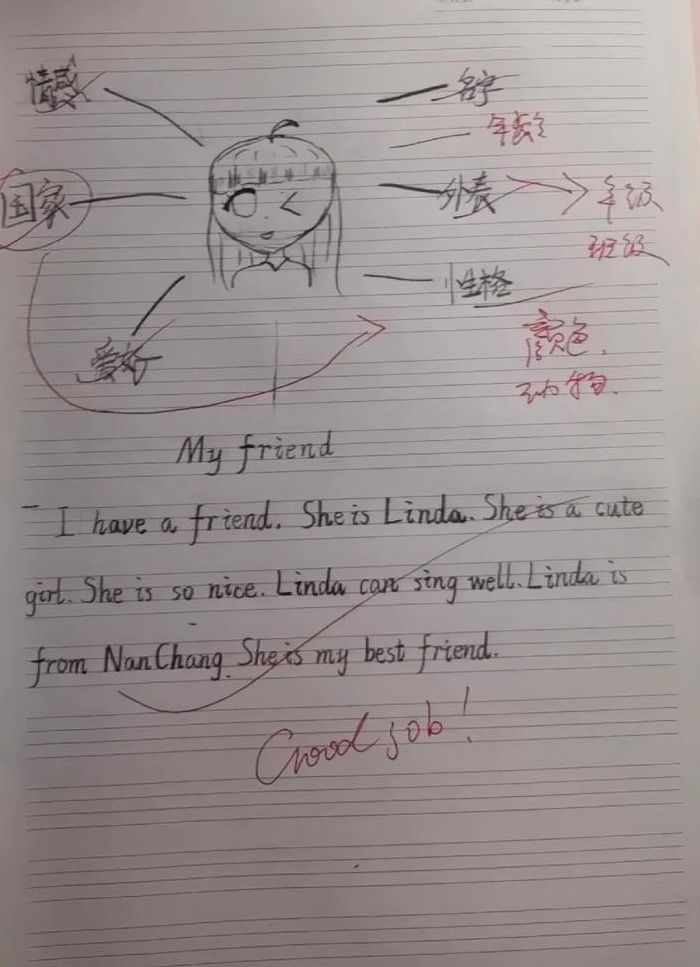 情感
名字
年龄
国家
外表
年级
班级
性格
爱好
颜色.
动物.
My friend
I have a friend. She is Linda. She is a cute
girl. She is so nice. Linda can sing well. Linda is
from NanChang. She is my best friend.
Good job!